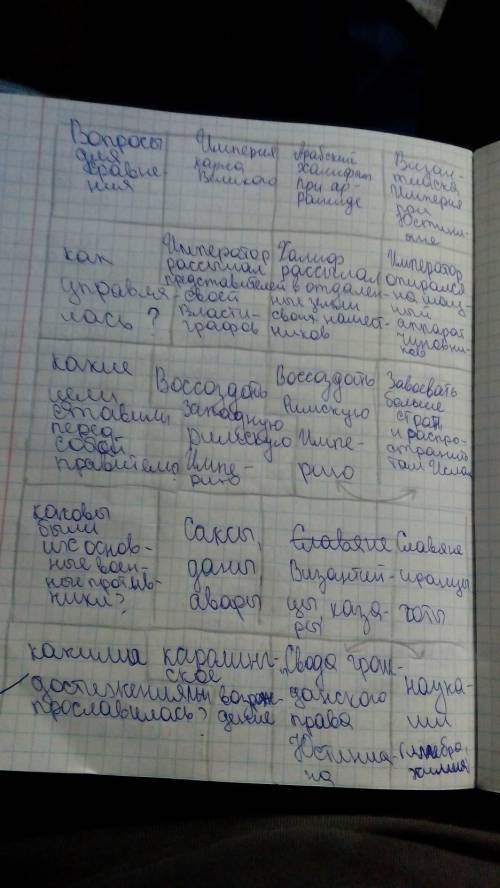 Вопросы
для
сравне-
ния
Империя
Карла
Великого
Арабский
Халифат
при ар-
рашиде
Визан-
тийская
Империя
при
Юстини-
ане
как
управля-
лась?
Император
рассылал
представителей
своей
власти-
графов
Халиф
рассылал
в отдален-
ные земли
своих намест-
ников
Император
опирался
на мощ-
ный
аппарат
чиновни-
ков
какие
цели
ставили
перед
собой
правители?
Воссоздать
западную
римскую
Импе-
рию
Воссоздать
Римскую
Импе-
рию
Завоевать
больше
стран
и распро-
странить
там Ислам
каковы
были
их основ-
ные воен-
ные против-
ники?
Саксы,
даны
авары
Славяне
Византий-
цы хаза-
ры
Славяне
иранцы
готы
какими
достежениями
прославилась?
каролинг-
ское
возрож-
дение
"Свода граж-
данского
права
Юстиниа-
на
наука-
ми
(алгебра,
химия)